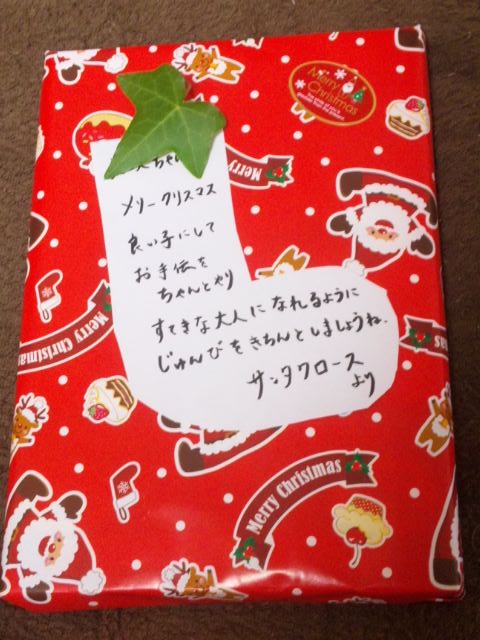 Merry
Christmas
Merry
ちゃん
メリークリスマス
良い子にして
お手伝を
ちゃんとやり
すてきな大人になれるように
じゅんびをきちんとしましょうね.
サンタクロース
より
Merry Christmas
Merry Christmas